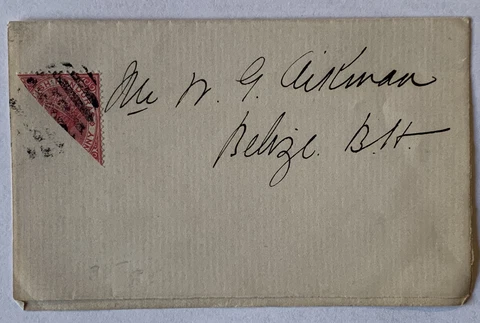 Mr W. G. Aikman
Belize. B.H.